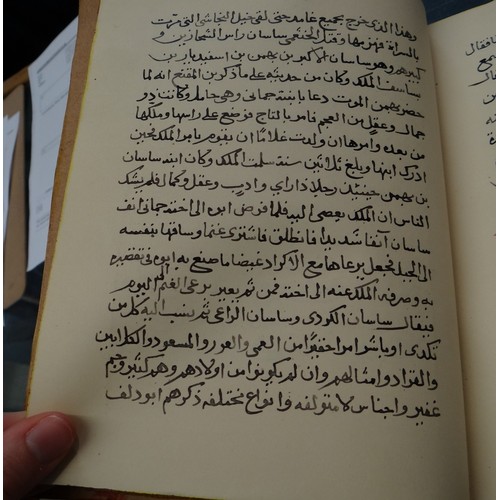 وهذا الذى خرج بجميع غامد حتى لقى خيل النجاشى التى مرت
بالسراة فهزمها وقتل الخثعمى ساسان راس الشحاذين و
كبيرهم وهو ساسان الاكبر بن بهمن بن اسفيديار بن
يستاسف الملك وكان من حديثه على ما ذكر بن المقفع انه لما
حضر بهمن الموت دعا بابنته حمانى وهى حامل وكانت ذو
جمال وعقل بن العجم فامر بالتاج فوضع على راسها وملكها
من بعده وامرها ان ولدت غلامًا ان يقوم بامر الملك لحين
ادرك ابنها ويبلغ ثلاثين سنة سلمت الملك وكان ابنه ساسان
بن بهمن حينئذ رجلا ذا راى وادب وعقل وكمال فلم يشك
الناس ان الملك يفضى اليه فلما فوض ابوه الى اخته حمانى انف
ساسان انفا شديدا فانطلق فاشترى غنما وساقها بنفسه
الى الجبل فجعل يرعاها مع الاكراد غيضا ما صنع به ابوه فى تقصيره
به وصرفه الملك عنه الى اخته فمن ثم يعير برعى الغنم الى اليوم
فيقال ساسان الكردى وساسان الراعى ثم ينسب اليه كل من
تكدى او باشر امرا حقيرًا من العمى والعور و المسعودو الكلابين
والقرادو امثالهم وان لم يكونوا من اولادهم وهم كثير وجم
غفير واجناس لامتولفه وانواع مختلفه ذكرهم ابو دلف